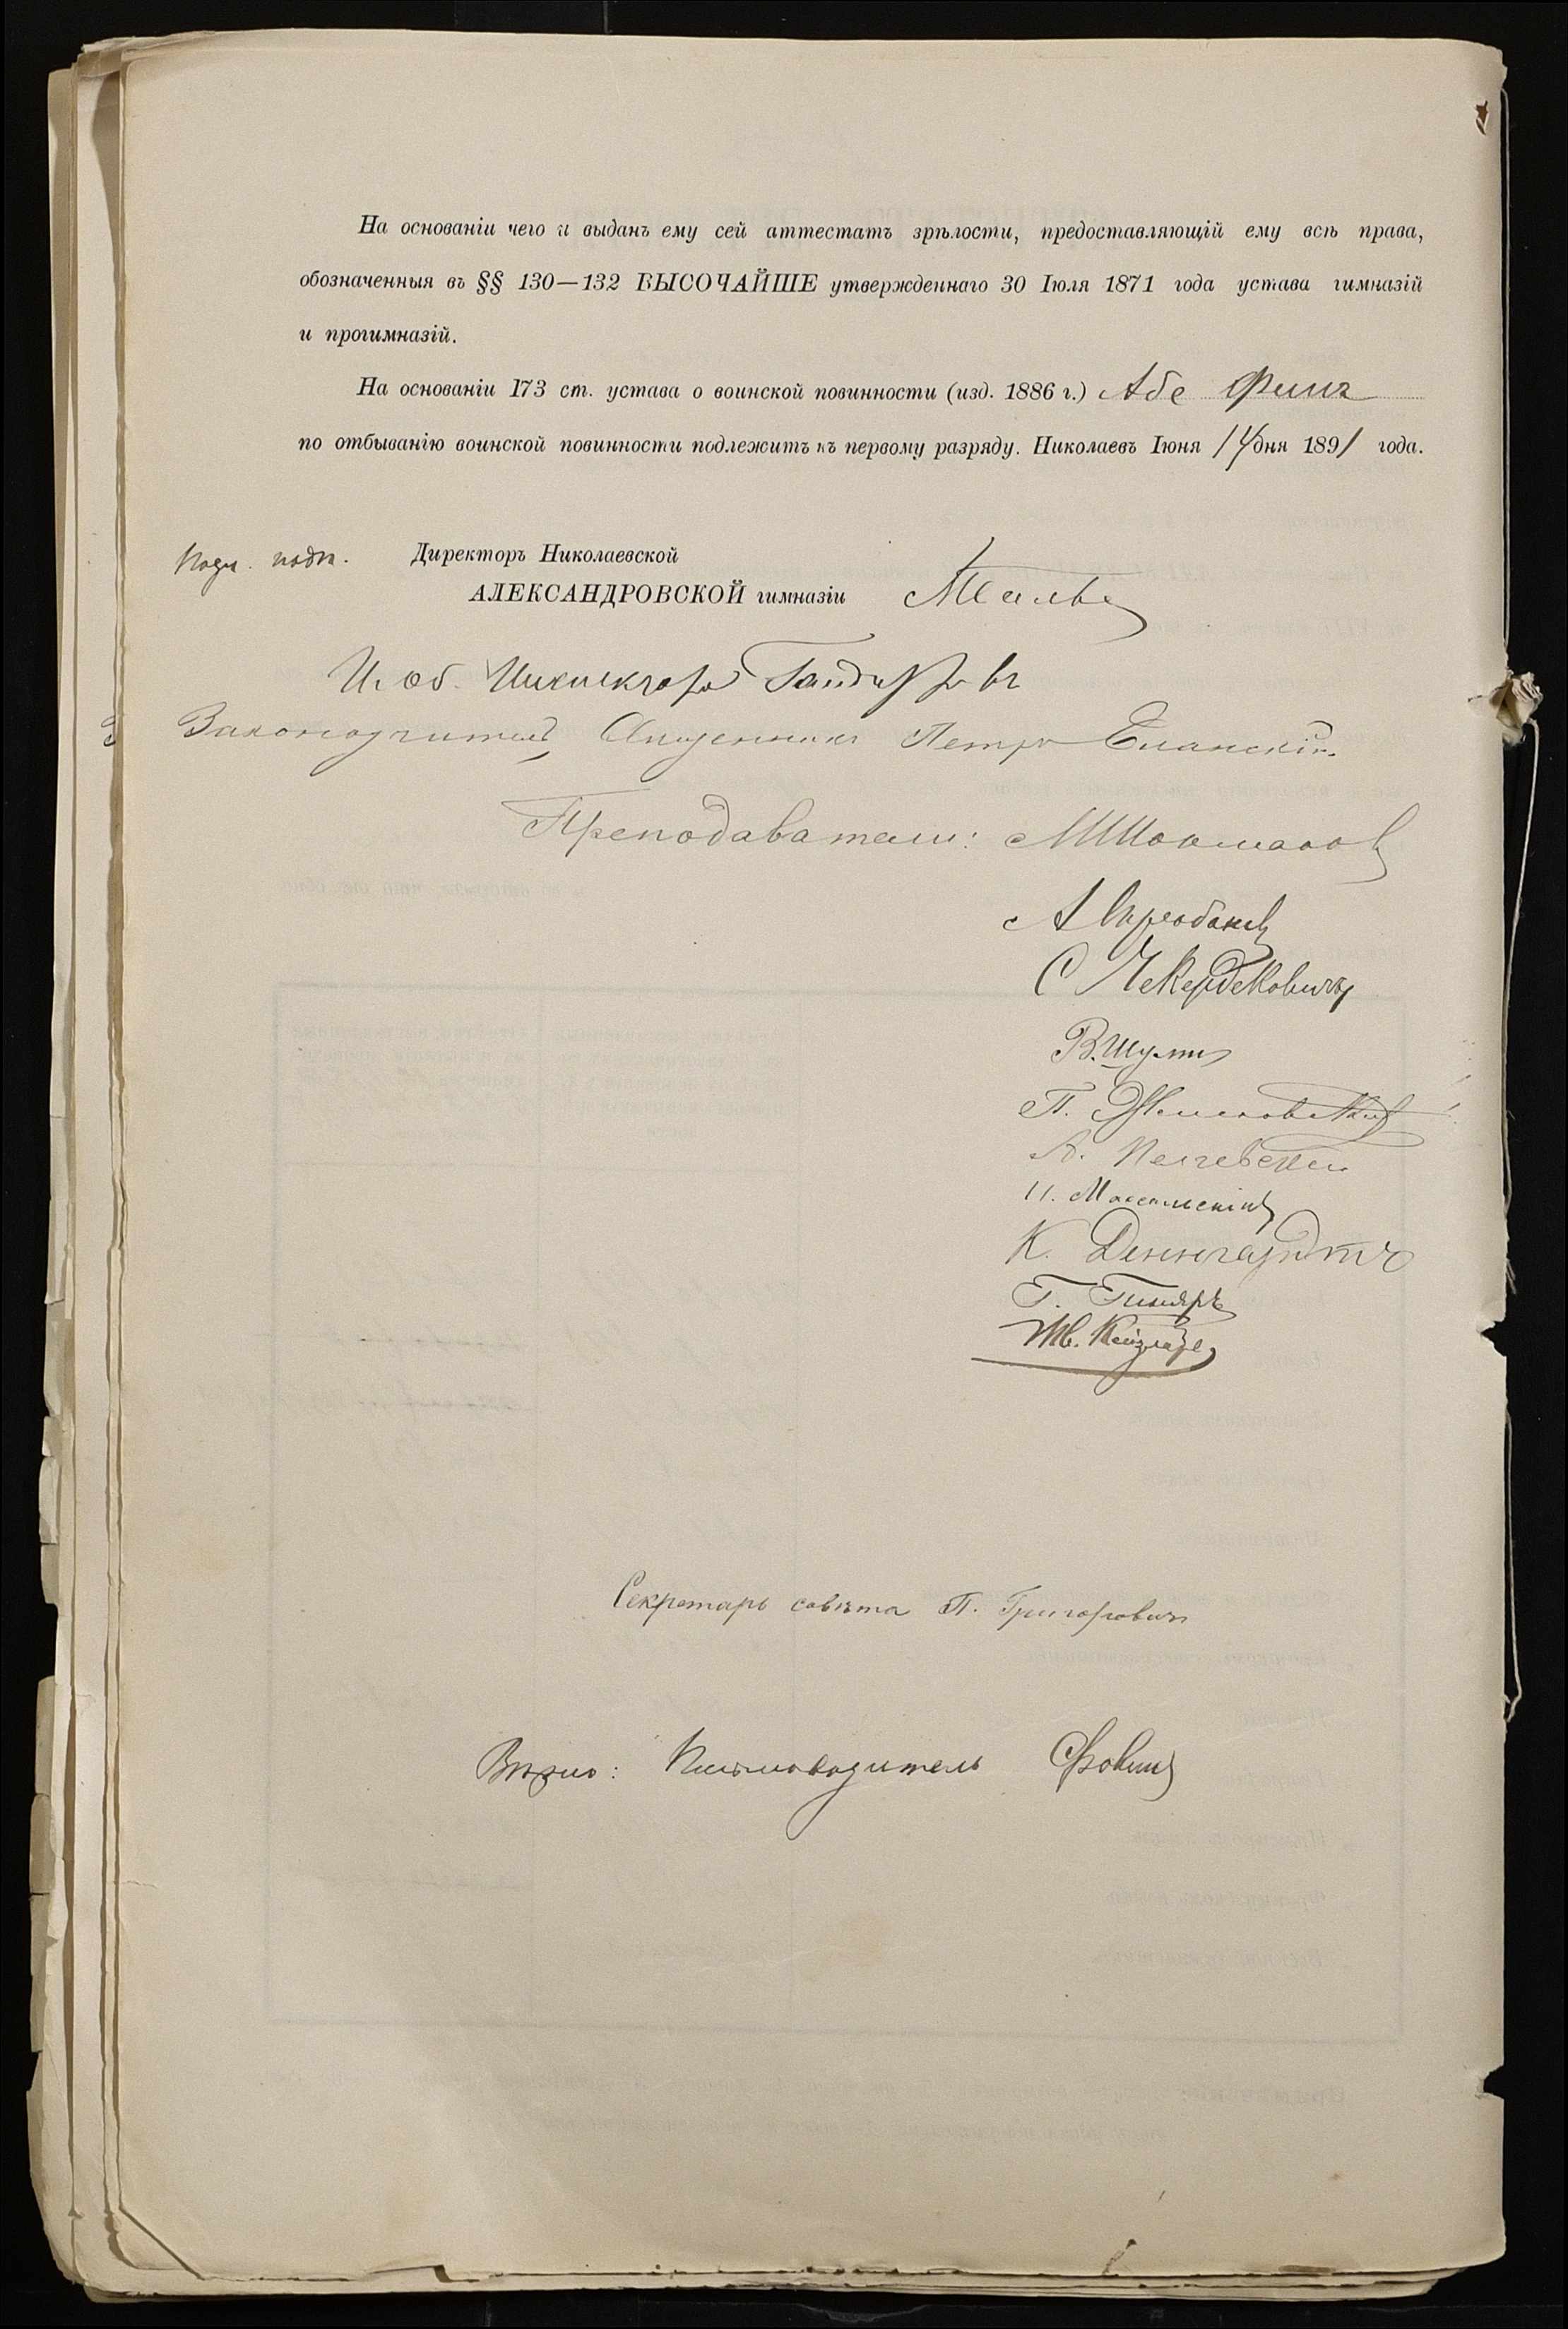 На основаніи чего и выданъ ему сей аттестатъ зрѣлости, предоставляющій ему всѣ права,
обозначенныя въ §§ 130—132 ВЫСОЧАЙШЕ утвержденнаго 30 Іюля 1871 года устава гимназій
и прогимназій.
На основаніи 173 ст. устава о воинской повинности (изд. 1886 г.) Абе Финъ
по отбыванію воинской повинности подлежитъ къ первому разряду. Николаевъ Іюня 14 дня 1891 года.
Подл. подп. Директоръ Николаевской
АЛЕКСАНДРОВСКОЙ гимназіи
И. об. Инспектора
Законоучитель Священникъ Петръ Еланскій
Преподаватели:
С Чекербековичъ
В. Шульц
К. Денгардтъ
Секретарь совѣта П. Григоровичъ
Вѣрно: Письмоводитель